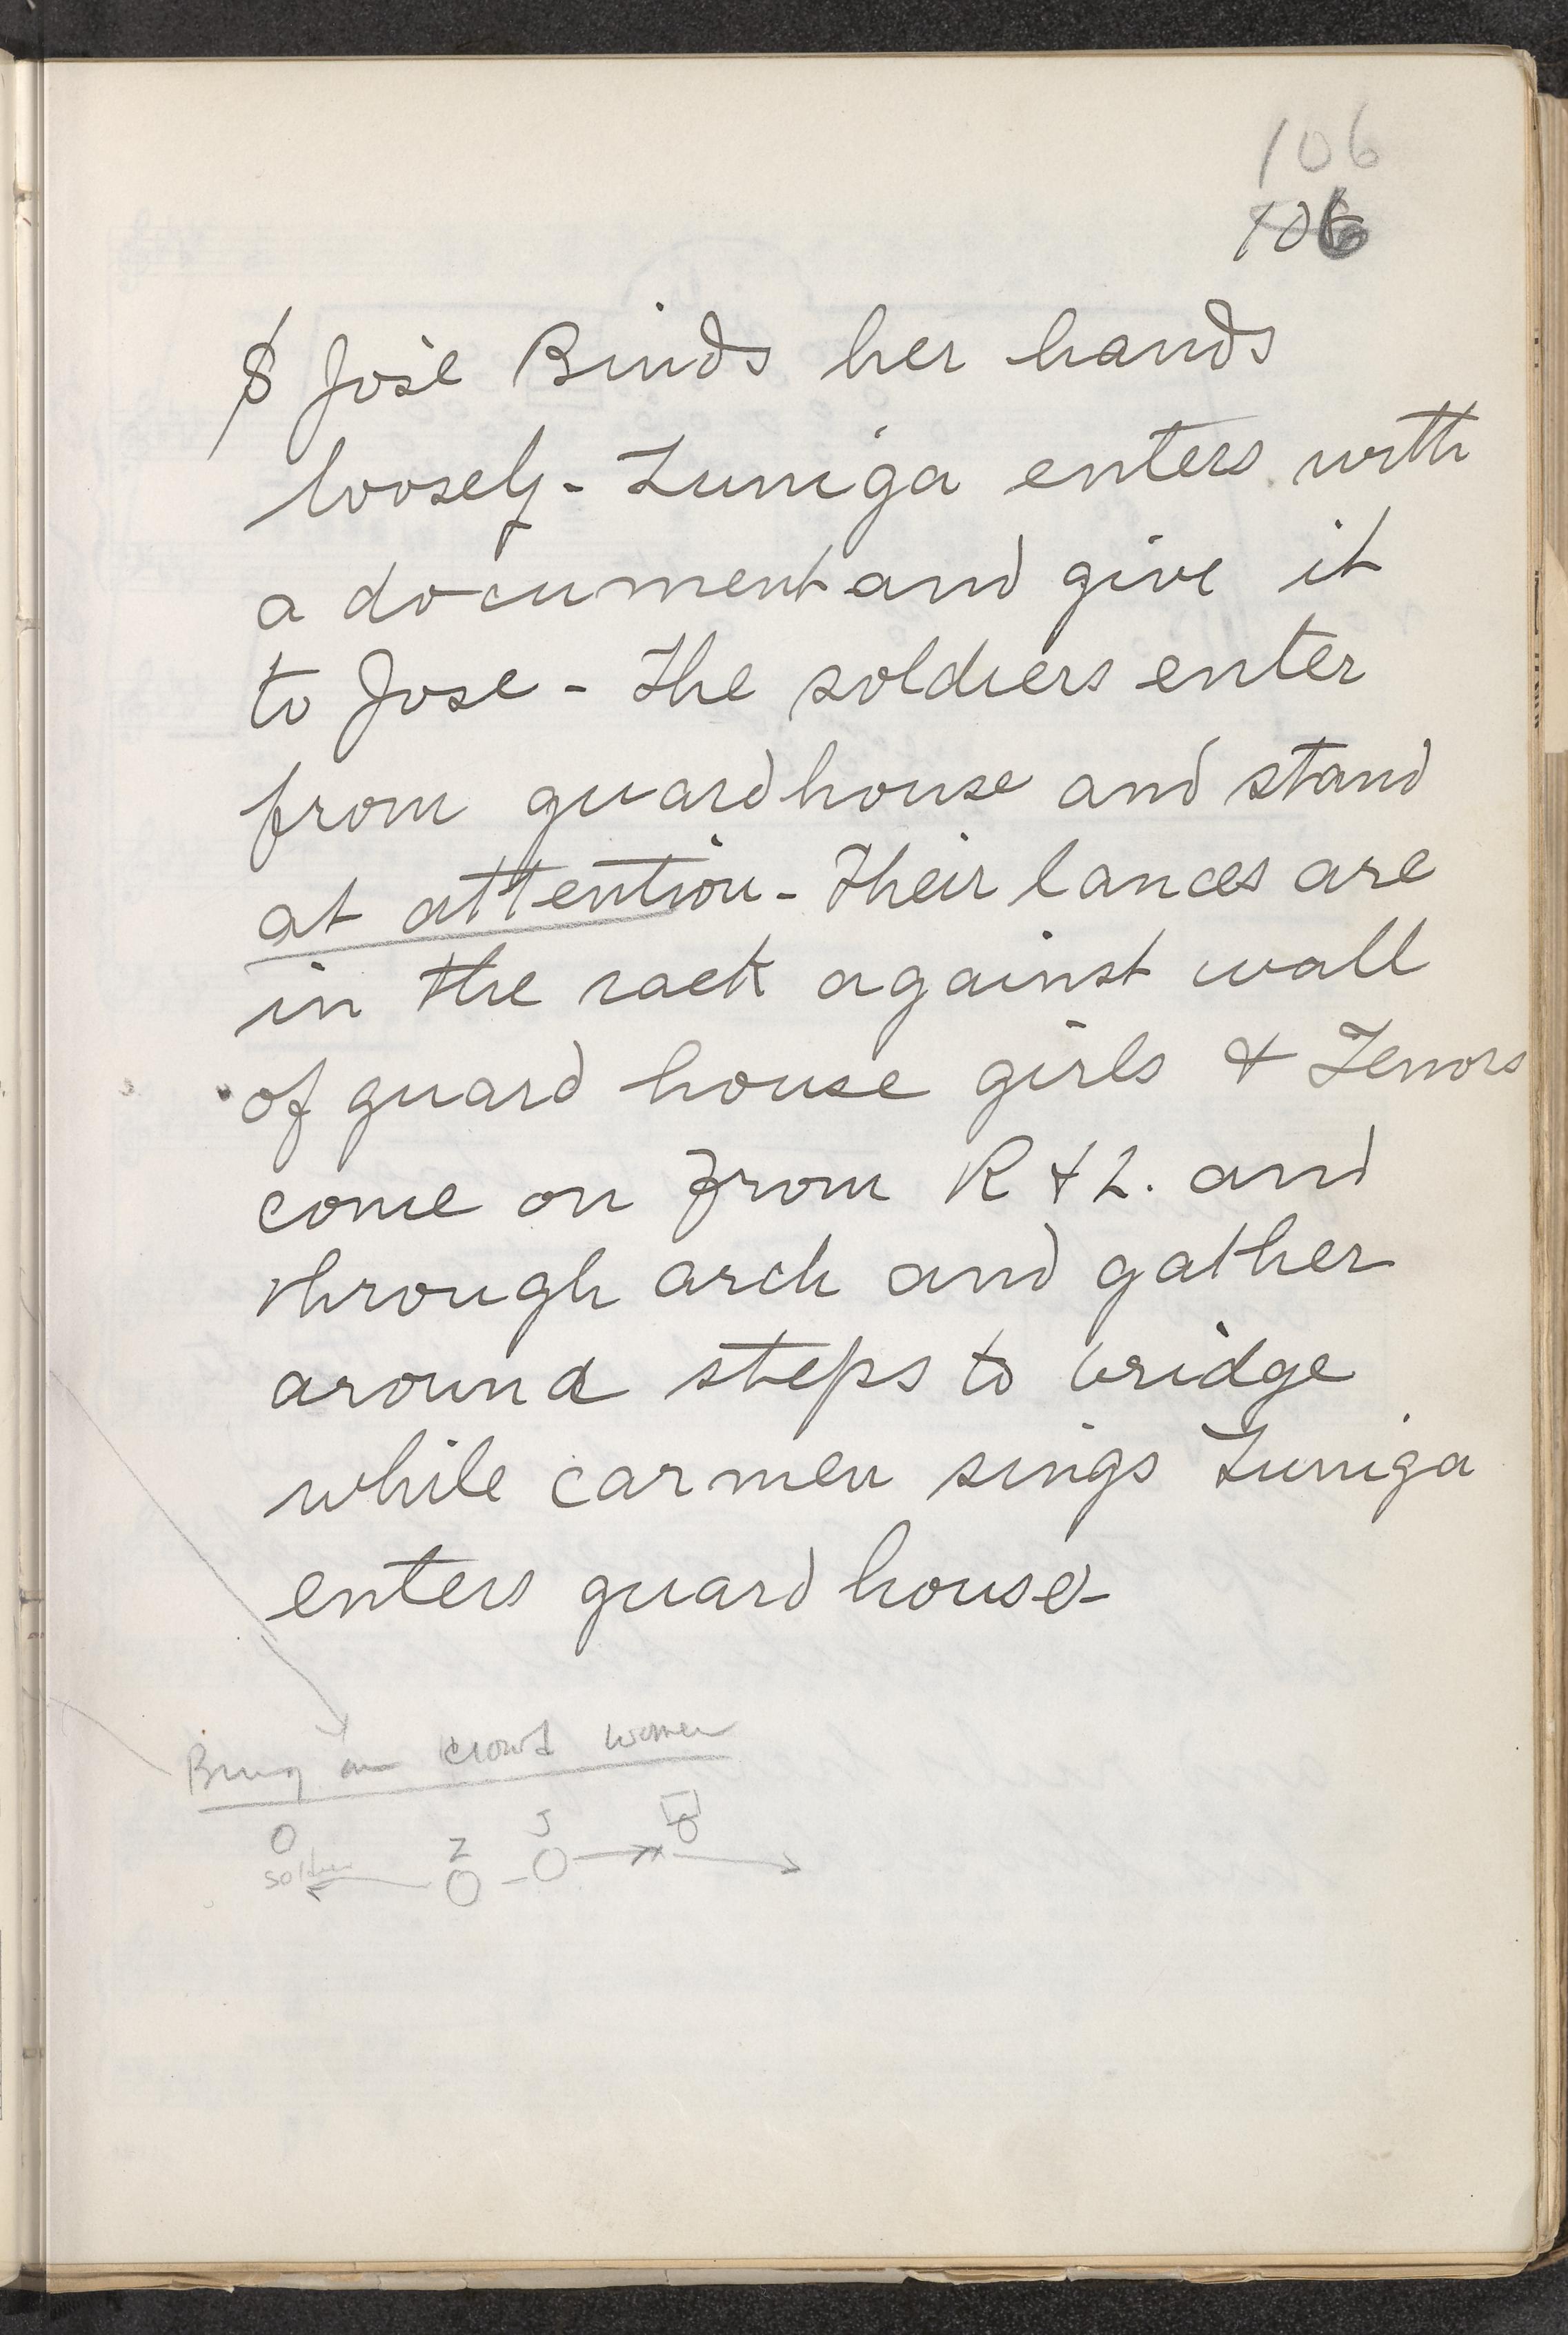 106
106
8 José Binds her hands
loosely - Zuniga enters with
a document and give it
to Jose - The soldiers enter
from guardhouse and stand
at attention - Their lances are
in the rack against wall
of guard house girls & Tenors
come on from R & L. and
through arch and gather
around steps to bridge
while carmen sings Zuniga
enters guard house -
Bring on crowd women
J
Z